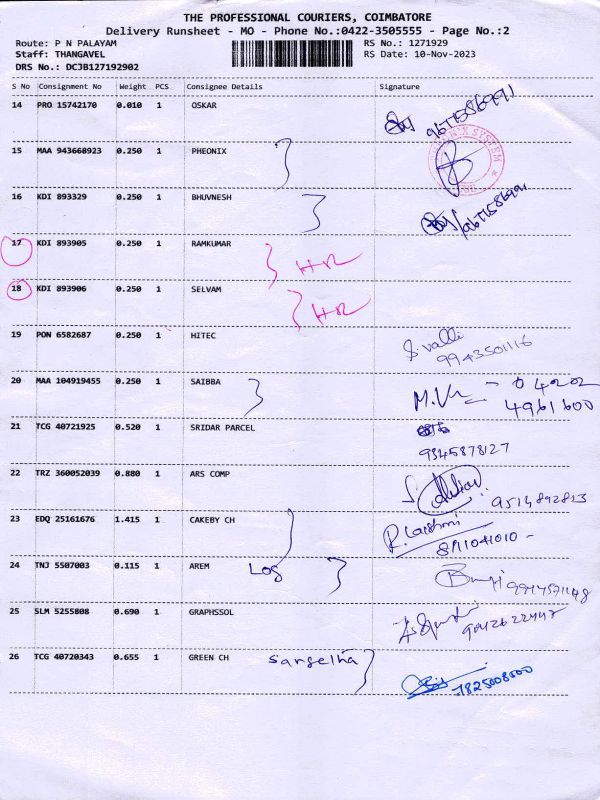 THE PROFESSIONAL COURIERS, COIMBATORE
Delivery Runsheet - MO - Phone No.:0422-3505555 - Page No.:2
Route: P N PALAYAM RS No.: 1271929
Staff: THANGAVEL RS Date: 10-Nov-2023
DRS No.: DCJB127192902
S No Consignment No Weight PCS Consignee Details Signature
14 PRO 15742170 0.010 1 OSKAR
15 MAA 943668923 0.250 1 PHEONIX
16 KDI 893329 0.250 1 BHUVNESH
17 KDI 893905 0.250 1 RAMKUMAR
18 KDI 893906 0.250 1 SELVAM
19 PON 6582687 0.250 1 HITEC S. valli
9943501116
20 MAA 104919455 0.250 1 SAIBBA - 0422
4961600
21 TCG 40721925 0.520 1 SRIDAR PARCEL
9345878127
22 TRZ 360052039 0.880 1 ARS COMP 9514892813
23 EDQ 25161676 1.415 1 CAKEBY CH R. Lakshmi
24 TNJ 5507003 0.115 1 AREM Log
25 SLM 5255808 0.690 1 GRAPHSSOL
26 TCG 40720343 0.655 1 GREEN CH